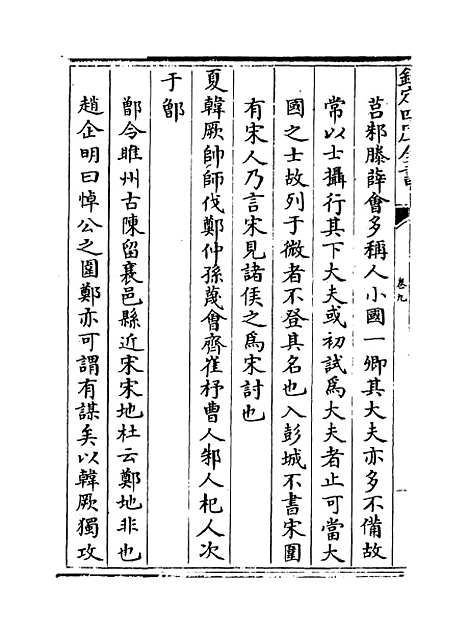 欽定四庫全書
卷九
莒邾滕薛會多稱人小國一卿其大夫亦多不備故
常以士攝行其下大夫或初試為大夫者止可當大
國之士故列于微者不登其名也入彭城不書宋圍
有宋人乃言宋見諸侯之為宋討也
夏韓厥帥師伐鄭仲孫蔑會齊崔杼曹人邾人杞人次
于鄫
鄫今睢州古陳留襄邑縣近宋宋地杜云鄭地非也
趙企明曰悼公之圖鄭亦可謂有謀矣以韓厥獨攻